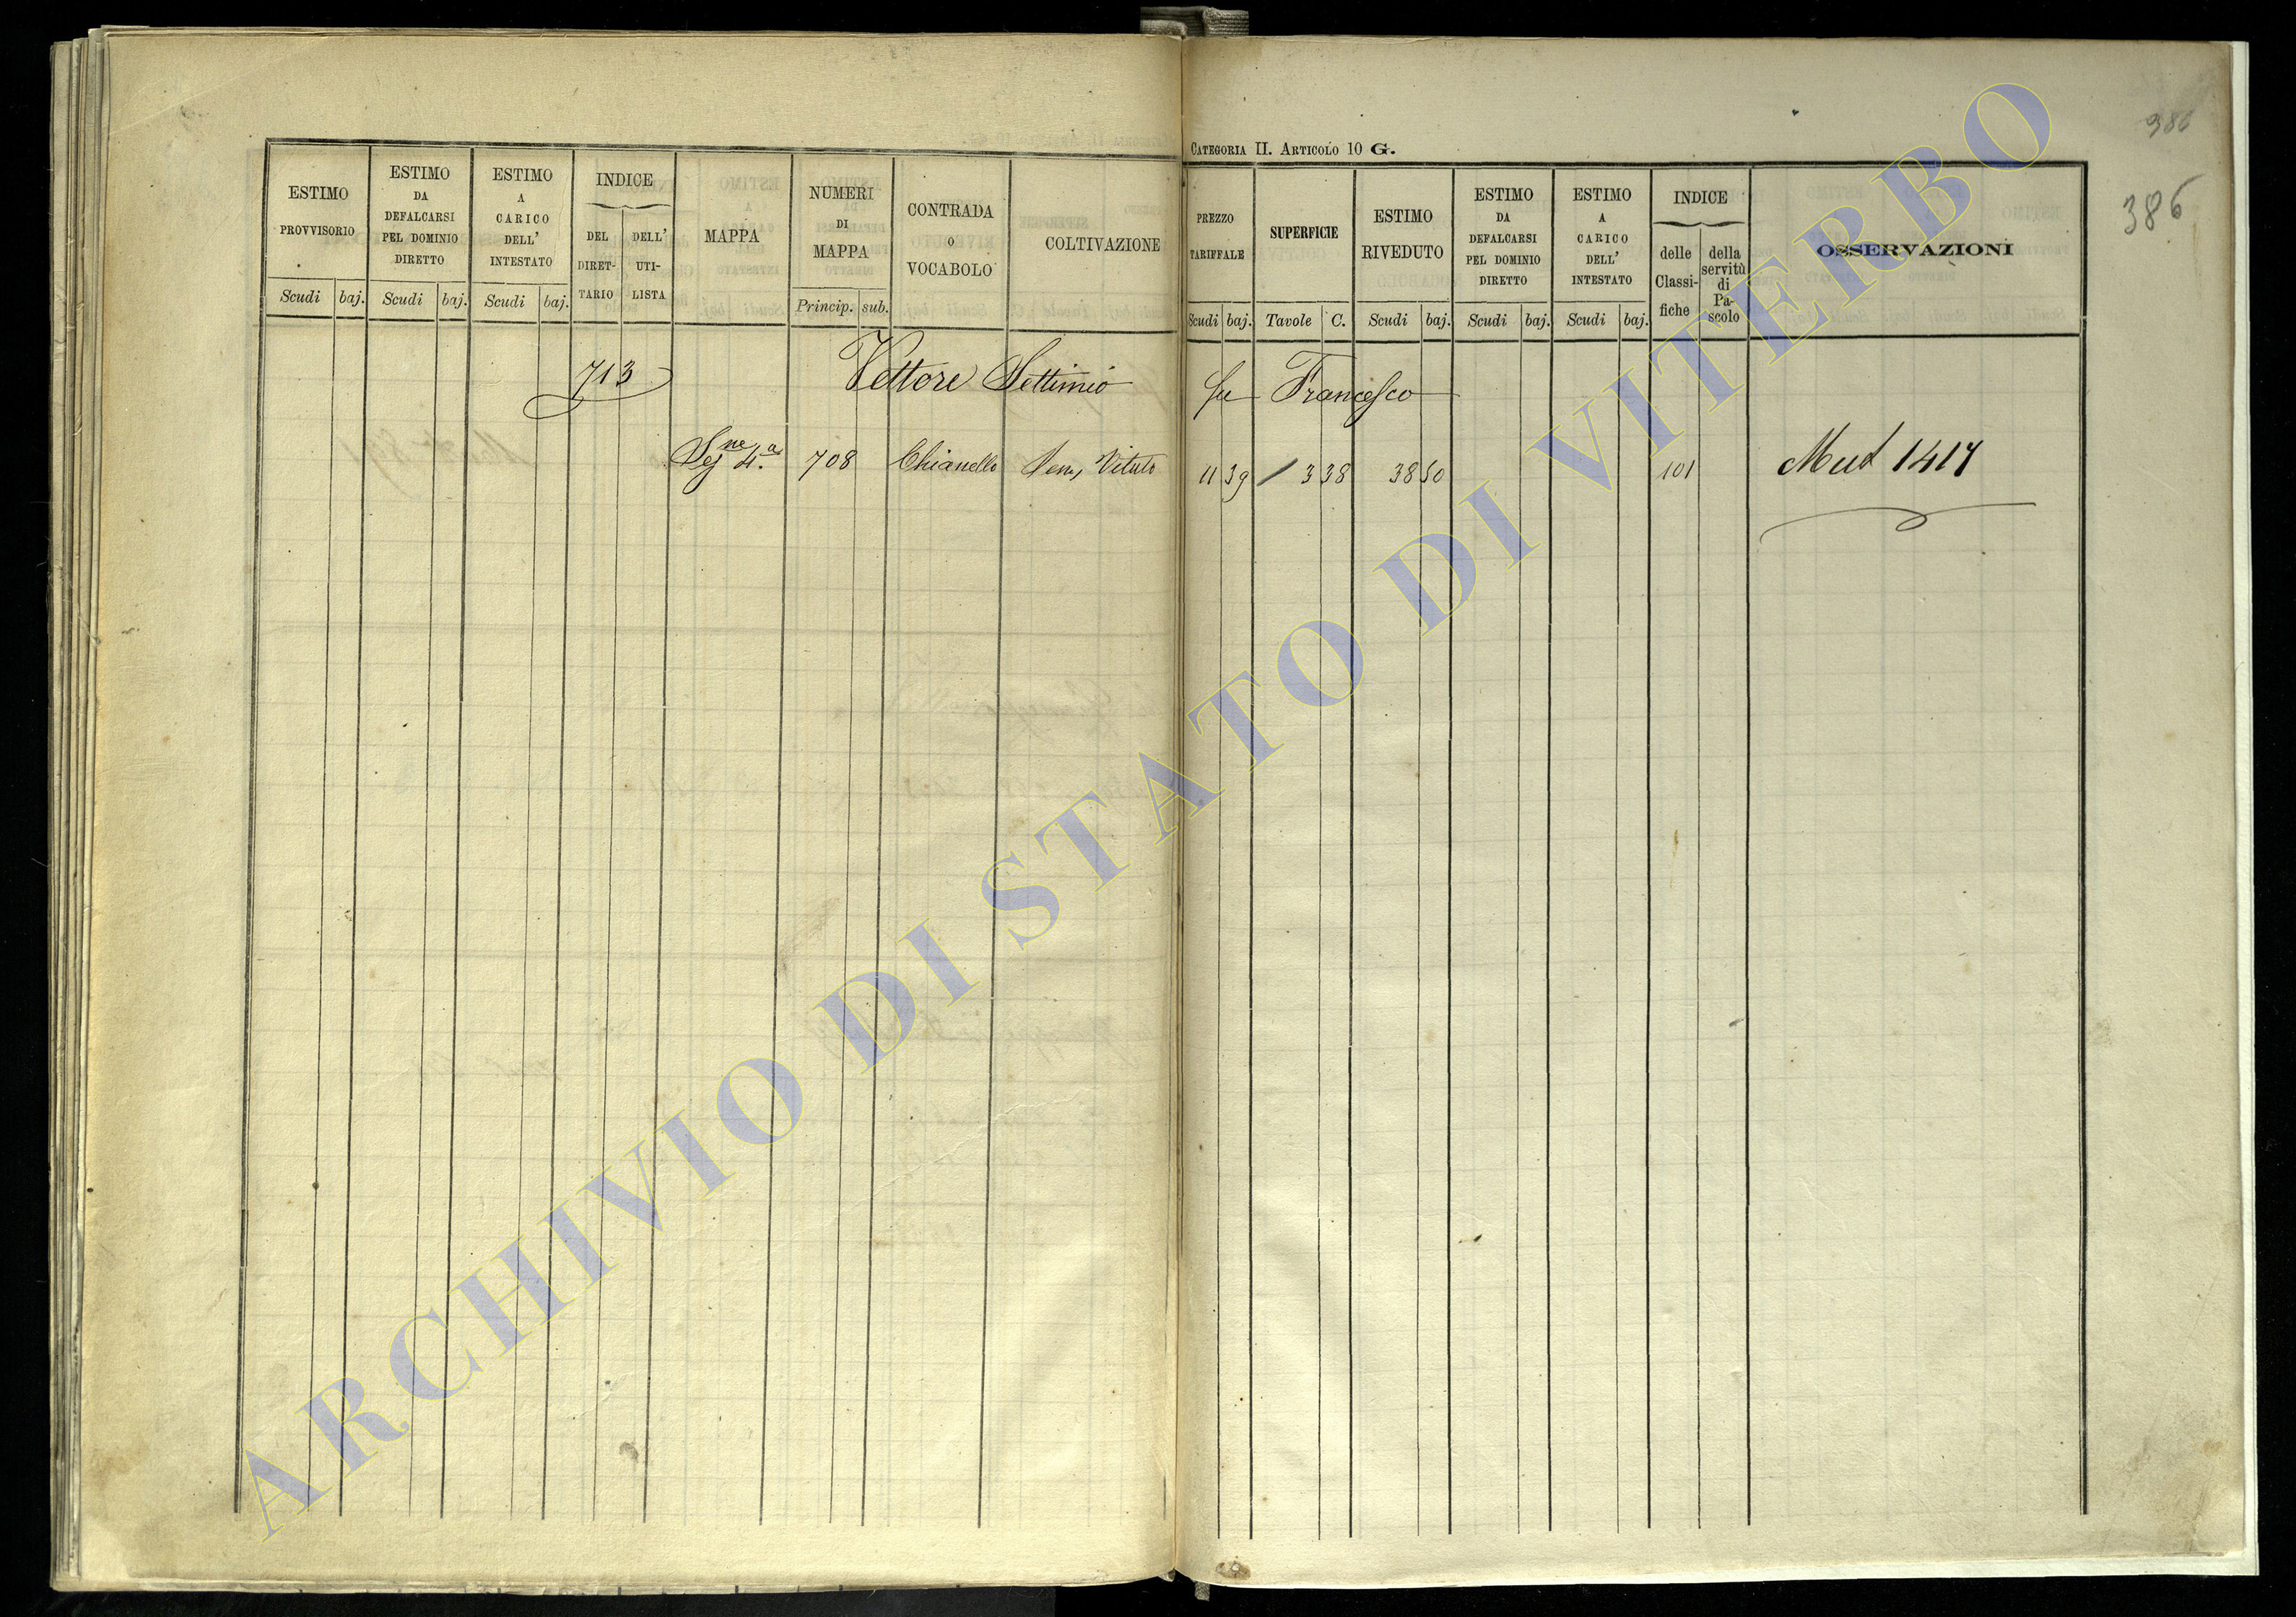 CATEGORIA II. ARTICOLO 10 G.
386
386
ESTIMO PROVVISORIO
Scudi baj.
ESTIMO DA DEFALCARSI PEL DOMINIO DIRETTO
Scudi baj.
ESTIMO A CARICO DELL' INTESTATO
Scudi baj.
INDICE
DEL DIRET-TARIO
DELL' UTI-LISTA
MAPPA
NUMERI DI MAPPA
Princip. sub.
CONTRADA O VOCABOLO
COLTIVAZIONE
PREZZO TARIFFALE
Scudi baj.
SUPERFICIE
Tavole C.
ESTIMO RIVEDUTO
Scudi baj.
ESTIMO DA DEFALCARSI PEL DOMINIO DIRETTO
Scudi baj.
ESTIMO A CARICO DELL' INTESTATO
Scudi baj.
INDICE
delle Classi-fiche
della servitù di Pa-scolo
OSSERVAZIONI
713 Vettore Settimio fu Francesco
Sez.ne 4.a 708 Chianello Sem, Vitato 11 39 3 38 38 50 101 Mut 1417
ARCHIVIO DI STATO DI VITERBO